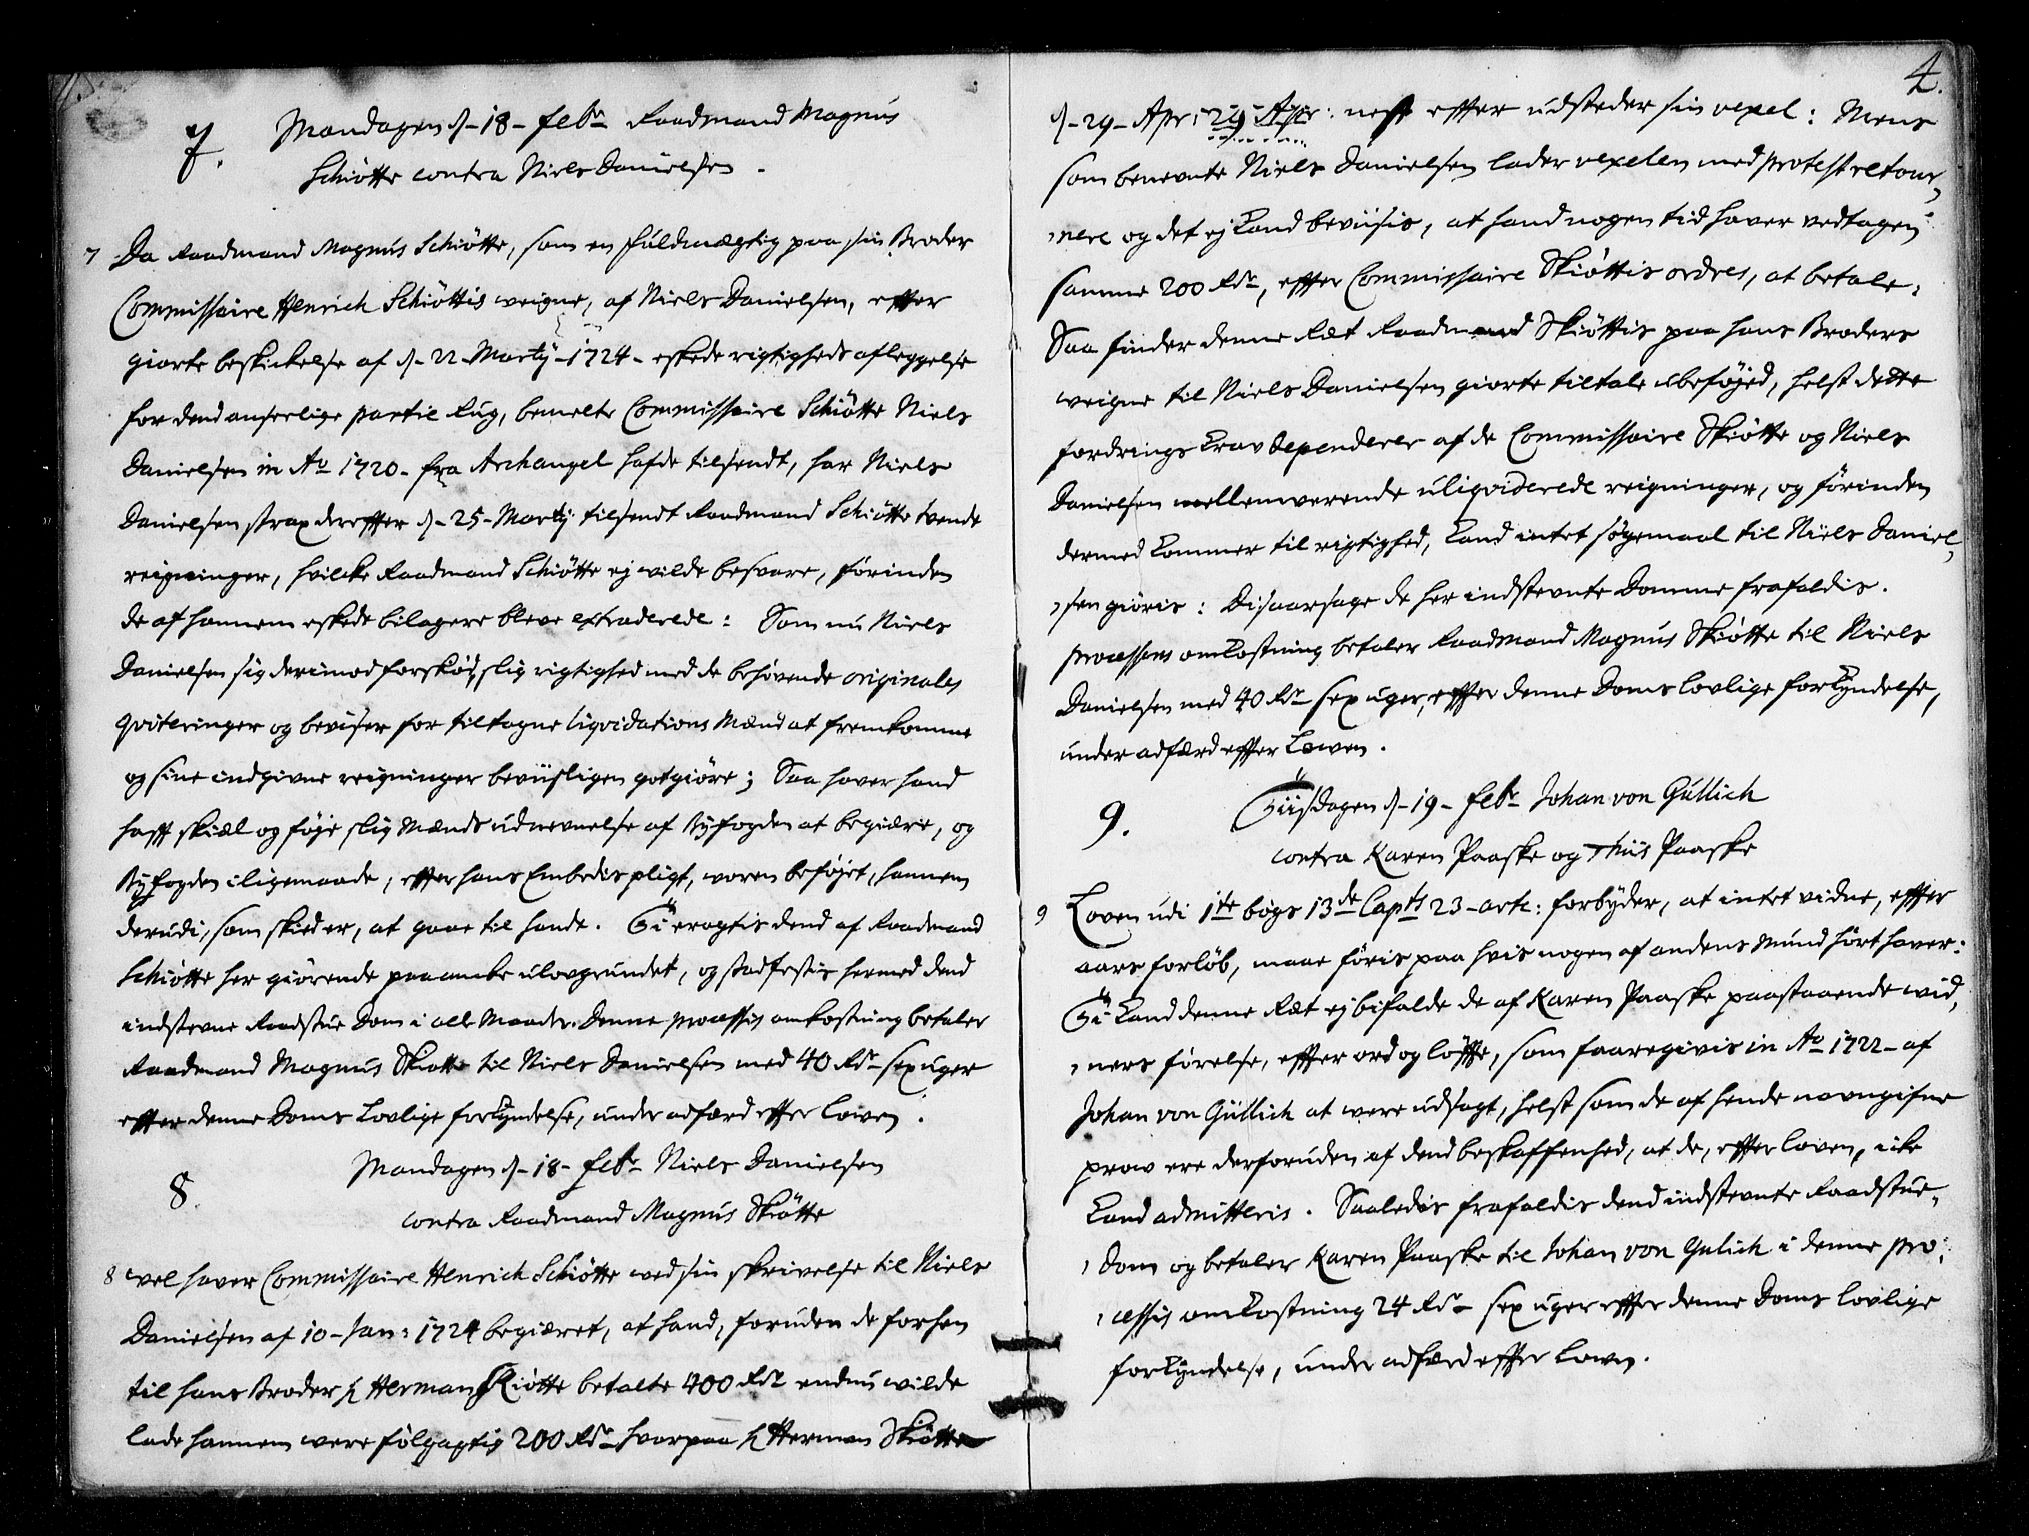 7. Mandagen d- 18- febr Raadmand Magnus
Schiøtte contra Niels Danielsen.
7 Da Raadmand Magnus Schiøtte, som en fuldmægtig paa sin Broder
Commissaire Henrich Schiøttis weigne, af Niels Danielsen, effter
giorte beskickelse af d- 22- Martÿ- 1724- eskede rigtigheds afleggelse
for dend anseelige partie Rug, bemelte Commissaire Schiøtte Niels
Danielsen in Ao 1720- fra Archangel hafde tilsendt, har Niels
Danielsen strax dereffter d- 25- Martÿ tilsendt Raadmand Schiøtte tvende
reigninger, hvilcke Raadmand Schiøtte ej wilde besvare, förinden
de af hannem eskede bilagere bleve extraderede: Som nu Niels
Danielsen sig derimod forskød, slig rigtighed med de behøvende originales
qviteringer og beviser for tiltagne liqvidations Mænd at fremkomme
og sine indgivne reigninger beviisligen gotgiøre; Saa haver hand
hafft skiæl og føje slig Mænds udnevnelse af Byfogden at begiære, og
Byfogden iligemaade, effter hans Embedis pligt, woren beføjet, hannem
derudi, som skied er, at gaae til hande. Ti eragtis dend af Raadmand
Schiøtte her giørende paaancke ulovgrundet, og stadfestis hermed dend
indstevne Raadstue Dom i alle Maader. Denne processis omkostning betaler
Raadmand Magnus Skiøtte til Niels Danielsen med 40 Rdr sex uger
effter denne Doms Lovlige forkyndelse, under adfærd effter lowen.
8. Mandagen d- 18- febr Niels Danielsen
contra Raadmand Magnus Skiøtte
8 wel haver Commissaire Henrich Schiøtte wed sin skrivelse til Niels
Danielsen af 10- Jan: 1724 begiæret, at hand, foruden de forhen
til hans Broder Hr Herman Skiøtte betalte 400 Rdr endnu wilde
lade hannem were følgagtig 200 Rdr hvorpaa Hr Herman Skiøtte
4.
d- 29- Apr: 29 Apr: nest effter udsteder sin vexel: Mens
som benevnte Niels Danielsen lader vexelen med protest retour,
,nere og det ej kand beviisis, at hand nogen tid haver vedtagen
samme 200 Rdr, effter Commissaire Skiøttis ordres, at betale:
Saa finder denne Ræt Raadmand Skiøttis paa hans Broders
weigne til Niels Danielsen giorte tiltale ubeføjed, helst dette
fordrings krav dependerer af de Commissaire Skiøtte og Niels
Danielsen mellemwerende uliqviderede reigninger, og förinden
dermed kommer til rigtighed, kand intet søgemaal til Niels Daniel,
,sen giøris: Disaarsage de her indstevnte Domme frafaldis.
processens omkostning betaler Raadmand Magnus Skiøtte til Niels
Danielsen med 40 Rdr sex uger, effter denne Doms lovlige forkyndelse,
under adfærd effter Lowen.
9. Tiisdagen d- 19- febr Johan von Güllich
contra Karen Paaske og Thiis Paaske
9 Loven udi 1te bogs 13de Capts 23- artc: forbyder, at intet vidne, effter
aars forløb, maae føris paa hvis nogen af andens Mund hørt haver:
Ti kand denne Ræt ej bifalde de af Karen Paaske paastaaende wid,
,ners førelse, effter ord og løffte, som foaregivis in Ao 1722- af
Johan von Güllich at were udsagt, helst som de af hende navngifne
prow ere derforuden af dend beskaffenhed, at de, effter loven, icke
kand admitteris. Saaledis frafaldis dend indstevnte Raadstue,
,Dom og betaler Karen Paaske til Johan von Gulich i denne pro,
,cessis omkostning 24 Rdr sex uger effter denne Doms lovlige
forkyndelse, under adfærd effter Lowen.